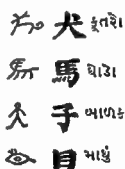 犬 કૂતરો
馬 ઘોડો
子 બાળક
目